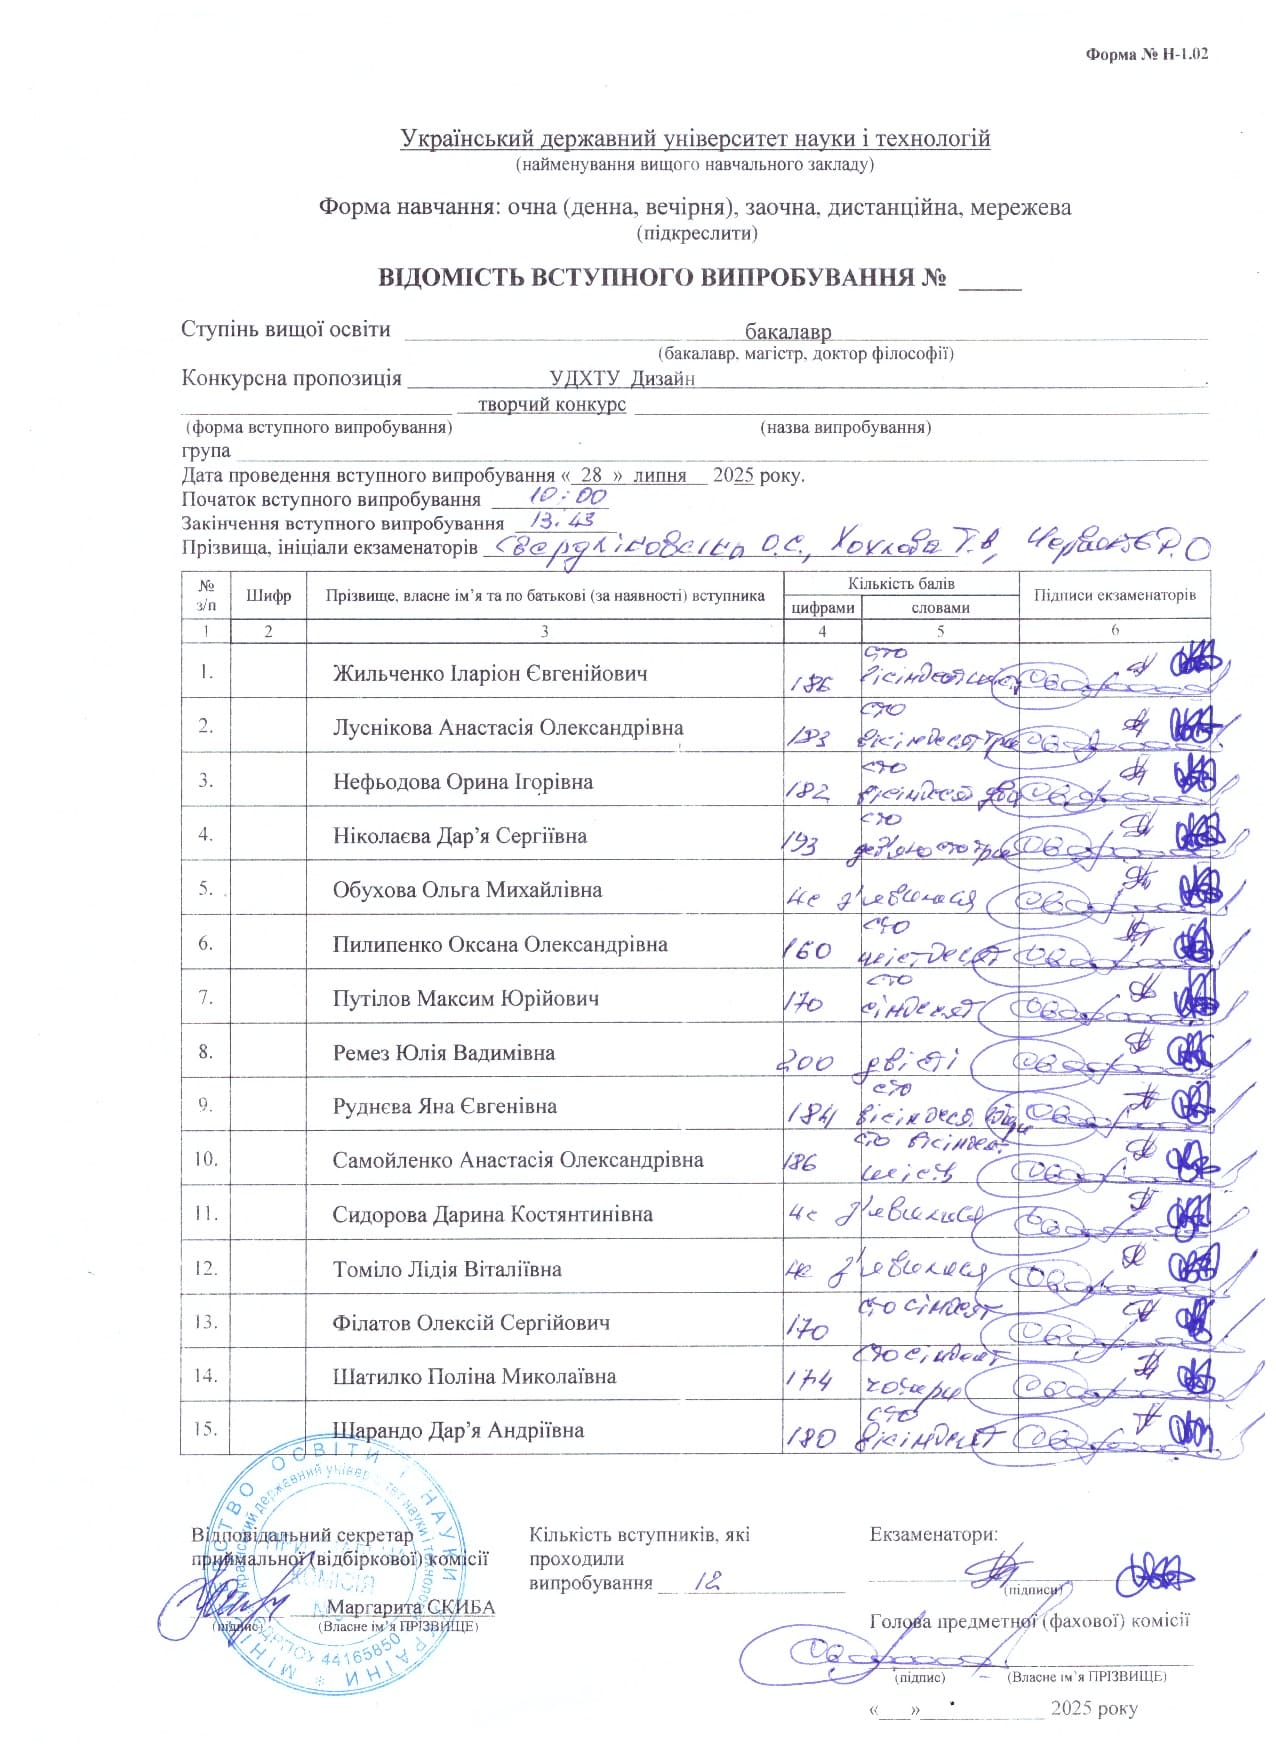 Форма № Н-1.02
Український державний університет науки і технологій
(найменування вищого навчального закладу)
Форма навчання: очна (денна, вечірня), заочна, дистанційна, мережева
(підкреслити)
ВІДОМІСТЬ ВСТУПНОГО ВИПРОБУВАННЯ № _____
Ступінь вищої освіти бакалавр
(бакалавр, магістр, доктор філософії)
Конкурсна пропозиція УДХТУ Дизайн
творчий конкурс
(форма вступного випробування) (назва випробування)
група
Дата проведення вступного випробування « 28 » липня 2025 року.
Початок вступного випробування 10:00
Закінчення вступного випробування 13.43
Прізвища, ініціали екзаменаторів О.С., Хохлова Т.В,
№ з/п Шифр Прізвище, власне ім’я та по батькові (за наявності) вступника Кількість балів Підписи екзаменаторів
цифрами словами
1 2 3 4 5 6
1. Жильченко Іларіон Євгенійович 186 сто
2. Луснікова Анастасія Олександрівна 183 сто вісімдесят три
3. Нефьодова Орина Ігорівна 182 сто вісімдесят два
4. Ніколаєва Дар’я Сергіївна 193 сто дев'яносто три
5. Обухова Ольга Михайлівна не з'явилася
6. Пилипенко Оксана Олександрівна 160 сто шістдесят
7. Путілов Максим Юрійович 170 сто сімдесят
8. Ремез Юлія Вадимівна 200 двісті
9. Руднєва Яна Євгенівна 184 сто
10. Самойленко Анастасія Олександрівна 186 сто вісімдесят шість
11. Сидорова Дарина Костянтинівна не з'явилася
12. Томіло Лідія Віталіївна не з'явилася
13. Філатов Олексій Сергійович 170 сто сімдесят
14. Шатилко Поліна Миколаївна 174 сто сімдесят чотири
15. Шарандо Дар’я Андріївна 180 сто вісімдесят
Відповідальний секретар
приймальної (відбіркової) комісії
Маргарита СКИБА
(підпис) (Власне ім’я ПРІЗВИЩЕ)
Кількість вступників, які
проходили
випробування 12
Екзаменатори:
(підписи)
Голова предметної (фахової) комісії
(підпис) (Власне ім’я ПРІЗВИЩЕ)
«___»____________ 2025 року
МІНІСТЕРСТВО ОСВІТИ І НАУКИ УКРАЇНИ
Український державний університет науки і технологій
КОМІСІЯ
44165850